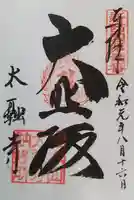 奉拝
令和元年八月十六日
大悲殿
太融寺